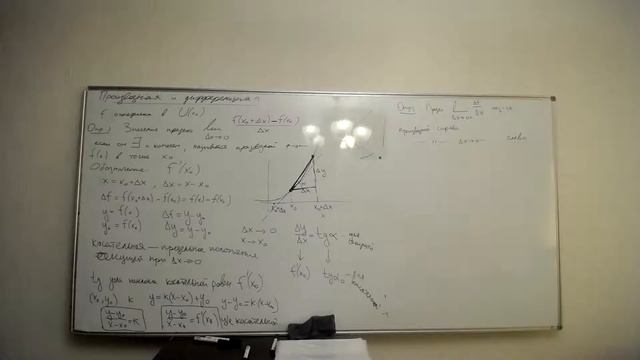 Производная и дифференциал
f определена в U(x₀)
Опр. Значение предела lim Δx→0 (f(x₀+Δx)-f(x₀))/Δx
если он ∃ и конечен, называется производной
f(x) в точке x₀
Обозначение f'(x₀)
x = x₀+Δx , Δx = x-x₀
Δf = f(x₀+Δx)-f(x₀) = f(x)-f(x₀)
y = f(x) Δf = y-y₀
y₀ = f(x₀) Δy = y-y₀
касательная — предельное положение
секущей при Δx→0
tg угла наклона касательной равен f'(x₀)
(x₀, y₀) k y = k(x-x₀)+y₀ y-y₀ = k(x-x₀)
(y-y₀)/(x-x₀) = k (y-y₀)/(x-x₀) = f'(x₀) - ур-е касательной
Δy
Δx
x₀ x₀+Δx
Δx→0
x→x₀
Δy/Δx = tgα - для секущей
↓ ↓
f'(x₀) tgα₀ - для касательной
Опр. Предел lim Δf/Δx наз-ся
производной справа
—"— Δx→ слева